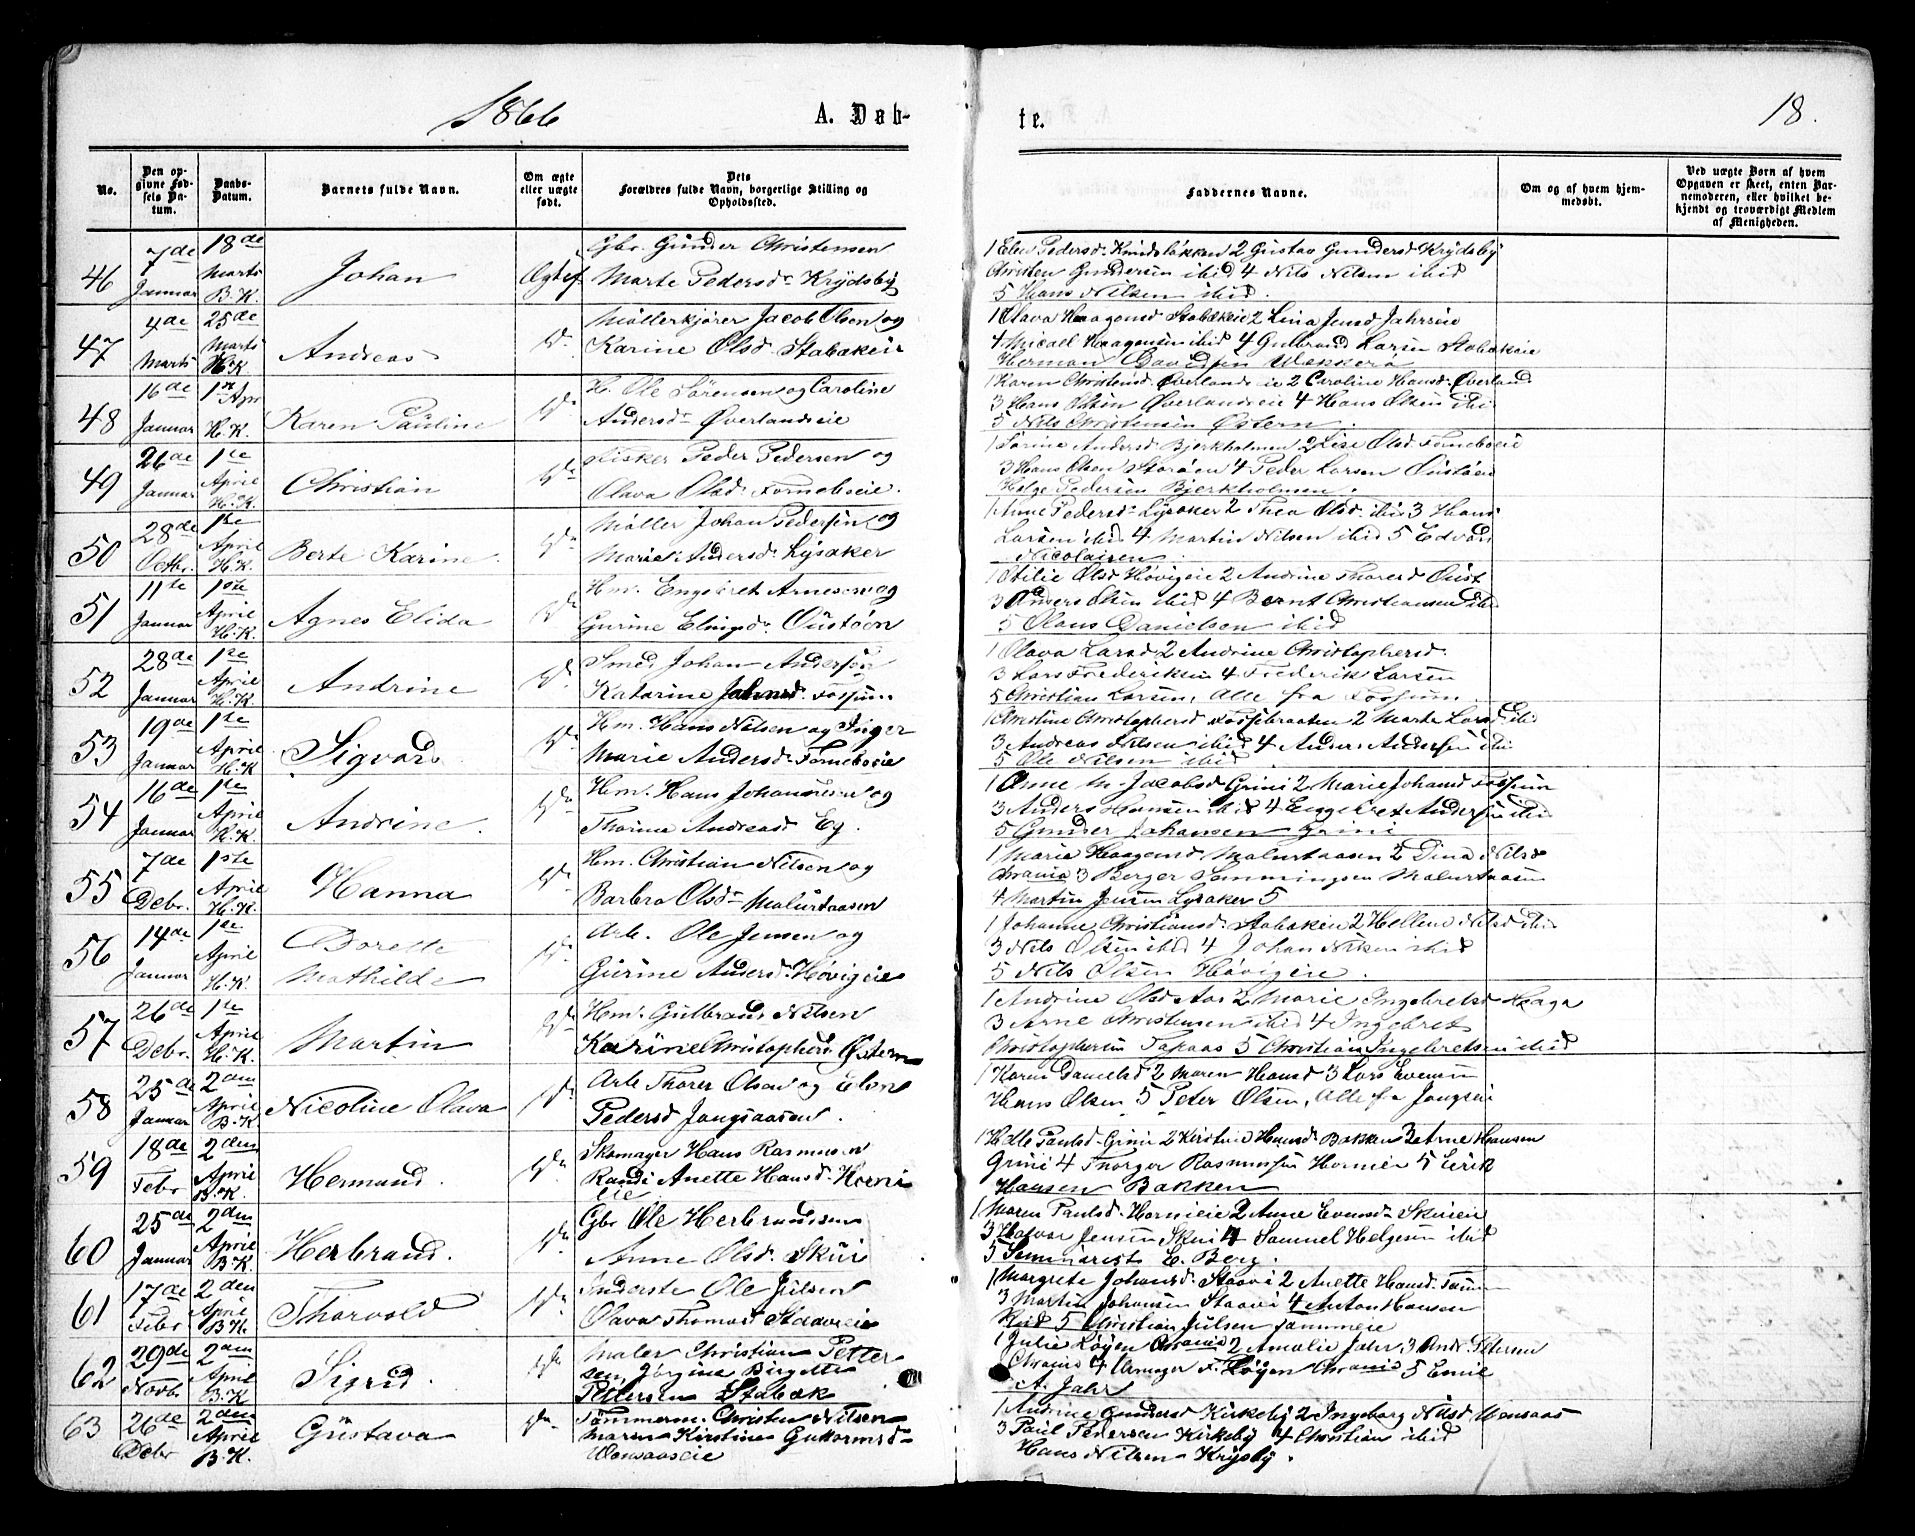 1866 A. Døb-
No. Den opgivne Fødsels Datum. Daabs-Datum. Barnets fulde Navn. Om ægte eller uægte født. Dets Forældres fulde Navn, borgerlige Stilling og Opholdssted.
46 7de Januar 18de Marts B.K. Johan Ægtef
Gbr. Gunder Christensen
Marte Pedersd. Krydsby
47 4de Marts 25de Marts H.K. Andreas Do
Møllerkjører Jacob Olsen og
Karine Olsd. Stabækeie
48 16de Januar 1ste Apr H.K. Karen Pauline Do
H. Ole Sørensen og Caroline
Andersd. Øverlandseie
49 26de Januar 1ste April H.K. Christian Do
Fisker Peder Pedersen og
Olava Olsd. Forneboeie.
50 28de Octbr. 1ste April H.K. Berte Karine Do
Møller Johan Pedersen og
Marie Andersd. Lysaker
51 11te Januar 1ste April H.K. Agnes Elida Do
Hm. Engebret Arnesen og
Gurine Elingsd. Oustøen
52 28de Januar 1ste April H.K. Andrine Do
Smed Johan Andersen
Katarine Johnsd. Fossum
53 19de Januar 1ste April H.K. Sigvard Do
Hm. Hans Nilsen og Inger
Marie Andersd. Forneboeie
54 16de Januar 1ste April H.K. Andrine. Do
Hm. Hans Johannesen og
Thorine Andreasd Eg.
55 7de Debr. 1ste April H.K. Hanna Do
Hm. Christian Nilsen og
Barbro Olsd. Malurtaasen
56 14de Januar 1ste April H.K. Borette Mathilde Do
Arb. Ole Jensen og
Gurine Andersd. Høvigeie
57 26de Debr. 1ste April H.K. Martin Do
Hm. Gulbrand Nilsen
Karine Christophersd. Østern
58 25de Januar 2den April B.K. Nicoline Olava Do
Arb. Thorer Olsen og Elen
Pedersd Jongsaasen.
59 18de Febr 2den April B.K. Hermand. Do
Skomager Hans Rasmussen
Randi Anette Hansd. Horni
eie
60 25de Januar 2den April B.K. Herbrand. Do
Gbr Ole Herbrandsen
Anne Olsd. Skui
61 17de Febr 2den April B.K. Thorvald Do
Inderste Ole Julsen
Olava Thomasd Staaveie
62 29de Novbr 2den April B.K. Sigrid. Do
Maler Christian Petter
sen Jørgine Birgitte
Pettersen Stabæk
63 26de Debr 2den April B.K. Gustava Do
Tømmerm. Christen Nilsen
Maren Kirstine Guttormsd.
Vensaaseie
te. 18.
Faddernes Navne. Om og af hvem hjemmedøbt. Ved uægte Børn af hvem Opgaven er skeet, enten Barnemoderen, eller hvilket bekjendt og troværdigt Medlem af Menigheden.
1 Elen Pedersd. 2 Gustav Gundersd Krydsby
Christen Gundersen ibid 4 Nils Nilsen ibid
5 Hans Nilsen ibid.
1 Olava Haagensd Stabækeie 2 Lina Jensd Jahrseie
4 Micael Haagensen ibid 4 Gulbrand Larsen Stabækeie
Herman Davidsen Vækkerø
1 Karen Christensd. Øverlandseie 2 Caroline Hansd. Øverland
3 Hans Olsen Øverlandseie 4 Hans Olsen ibid
5 Nils Christensen Østern.
1 Sørine Andersd Bjerkholmen 2 Lise Olsd. Forneboeie
3 Hans Olsen Storøen 4 Peder Larsen Oustøen
Helge Pedersen Bjerkholmen.
1 Anne Pedersd. Lysaker 2 Thea Olsd. ibid 3 Hans
Larsen ibid 4 Martin Nilsen ibid 5 Edvard
Nicolaisen
1 Otilie Olsd Høvigeie 2 Andrine Thoresd Oust
3 Anders Olsen ibid 4 Bernt Christiansen ibid
5 Claus Danielsen ibid
1 Olava Larsd 2 Andrine Christophersd.
3 Lars Frederiksen 4 Frederik Larsen
5 Christian Larsen, Alle fra Fossum
3 Andreas Nilsen ibid 4 Anders Andersen ibid
5 Ole Nilsen ibid
1 Anne M. Jacobsd Grini 2 Marie Johansd Fossum
3 Anders Hansen ibid 4 Engebret Andersen ibid
5 Gunder Johansen Grini
1 Marie Haagensd. Malurtaasen 2 Tina Nilsd
Chrania 3 Berger Semmingsen Malurtaasen
4 Martin Jensen Lysaker 5
1 Johanne Christiansd. Stabækeie 2 Hellene Nilsd ibid
3 Nils Olsen ibid 4 Johan Nilsen ibid
5 Nils Olsen Høvigeie.
1 Andrine Olsd Aas 2 Marie Ingebretsd Haga
3 Arne Christensen ibid 4 Ingebret
Christophersen 5 Christian Ingebretsen ibid
1 Karen Danielsd 2 Maren Hansd 3 Lars Evensen
Hans Olsen 5 Peter Olsen, Alle fra Jongseie
1 Helle Paulsd. Grini 2 Kirstine Hansd. Bakken 3 Arne Hansen
Grini 4 Thorger Rasmussen Hornieie 5 Eirik
Hansen Bakken
1 Maren Paulsd. Hornieie 2 Anne Evensd. Skuieie
3 Halvor Jensen Skui 4 Samuel Helgesen ibid
5 Seminarist E. Berg.
1 Margrete Johansd. Staavi 2 Anette Hansd.
3 Martin Johansen Staavi 4 Anton Hansen
ibid 5 Christian Julsen
1 Julie Løyen Chrania 2 Amalie Jahr 3 Petersen
Chrania 4 F. Løyen Chrania 5 Emil
A. Jahr
1 Andrine Gundersd Kirkeby 2 Ingeborg Nilsd Vensaas
3 Paul Pedersen Kirkeby 4 Christian ibid
Hans Nilsen Krysby.